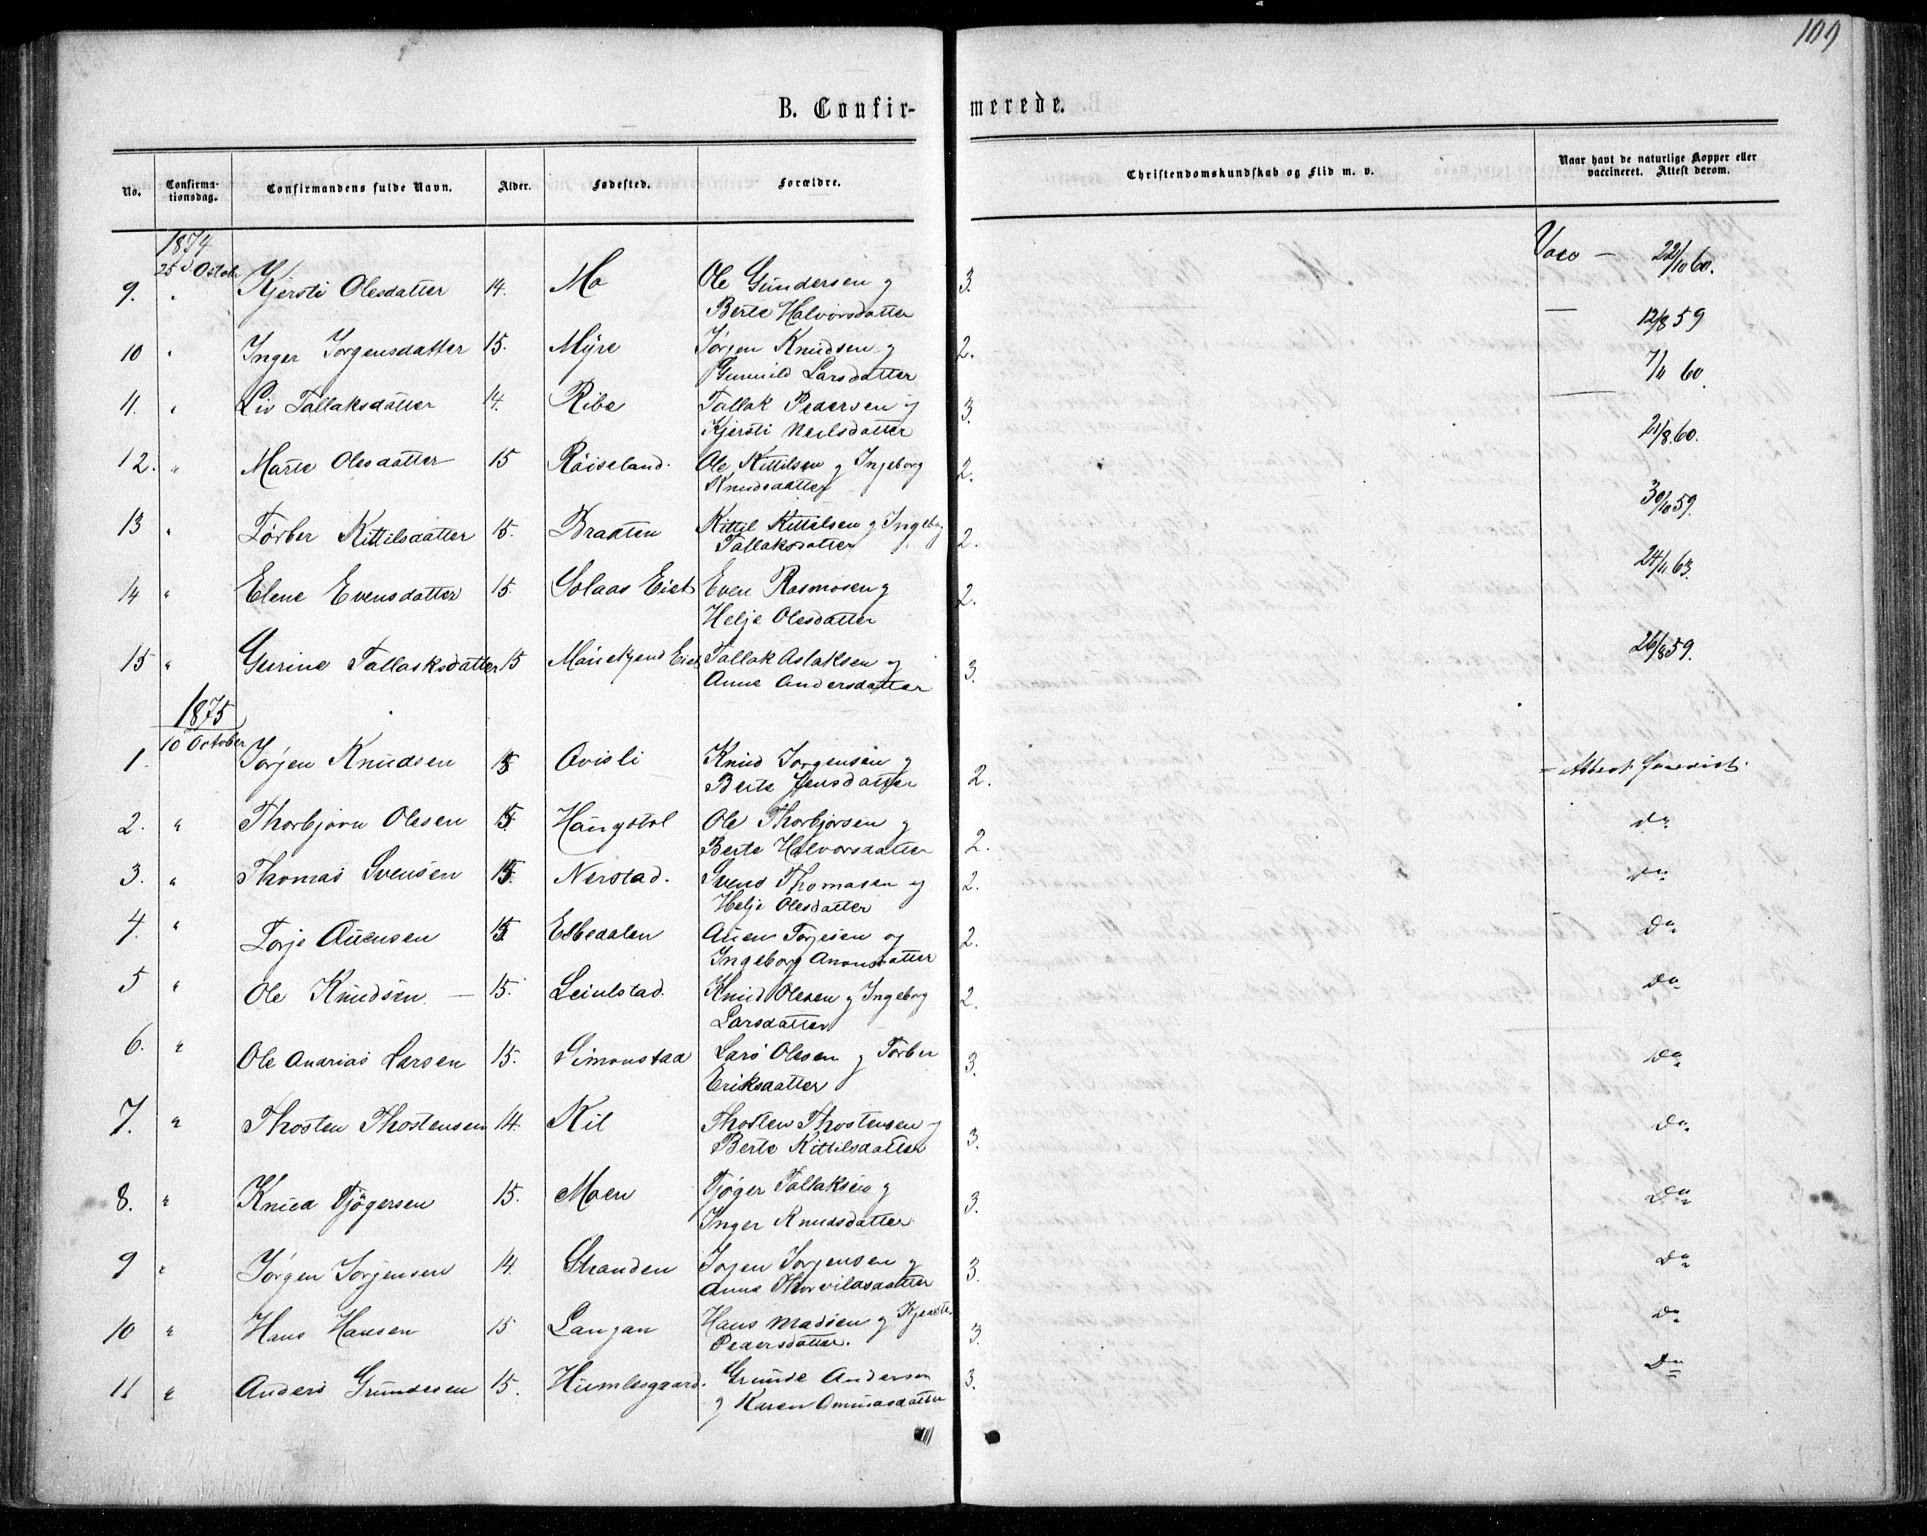 109
B. Confirmerede.
No. Confirmationsdag. Confirmandens fulde Navn. Alder. Fødested. Forældre. Christendomskundskab og Flid m. v. Naar havt de naturlige Kopper eller vaccineret. Attest derom.
1874
25d Octobr
9. " Kjersti Olesdatter 14. Mo Ole Gundersen og 3. Vacc — 22/10 60.
Berte Halvorsdatter
10 " Inger Jorgensdatter 15. Myre Jørgen Knudsen og 2. — 12/8 59
Gunnild Larsdatter
11. " Liv Tallaksdatter 14. Ribe Tallak Pedersen og 3. — 7/11 60.
Kjersti Neilsdatter
12. " Marte Olesdatter 15 Röiseland. Ole Kittilsen og Ingeborg 2. 21/8 60.
Knudsdatter
13 " Tørber Kittilsdatter 15. Braaten Kittil Kittilsen og Ingeborg 2. 30/10 59.
Tallaksdatter
14 " Elene Evensdatter 15 Solaas Eiet Even Rasmosen og 2. 24/11 63.
Helje Olesdatter
15 " Gurine Tallaksdatter 15 Eiet Tallak Aslaksen og 3. 26/8 59.
Anne Andersdatter
1875
10 October
1. Jørgen Knudsen 15 Ovisli Knud Jorgensen og 2. — Attest
Berte Jensdatter
2. " Thorbjorn Olesen 15 Haugstol Ole Thorbjorsen og 2. do
Berte Halvorsdatter
3. " Thomas Svensen 15. Nerstad. Svend Thomasen og 2. do
Helje Olesdatter
4. " Torje Auensen 15 Esbedalen Auen Torjesen og 2. Do
Ingeborg Anonsdatter
5 " Ole Knudsen — 15. Leiulstad. Knud Olesen og Ingeborg 2. Do
Larsdatter
6. " Ole Andrias Larsen 15. Simonstad Lars Olesen og Torber 3. Do
Eriksdatter
7. " Thosten Thostensen 14. Kil Thosten Thostensen og 3. Do
Berte Kittilsdatter
8. " Knud Tjögersen 15. Moen Tjöger Tallaksen og 3. Do
Inger Knudsdatter
9 " Jörgen Jorgensen 14. Stranden Jorgen Jorgensen og 3. Do
Anne Thorvildsdatter
10 " Hans Hansen 15 Langan Hans Madsen og Kjersti 3. Do
Pedersdatter.
11 " Anders Grundesen 15. Humlesgaard. Grunde Andersen 3. Do
og Karen Omundsdatter